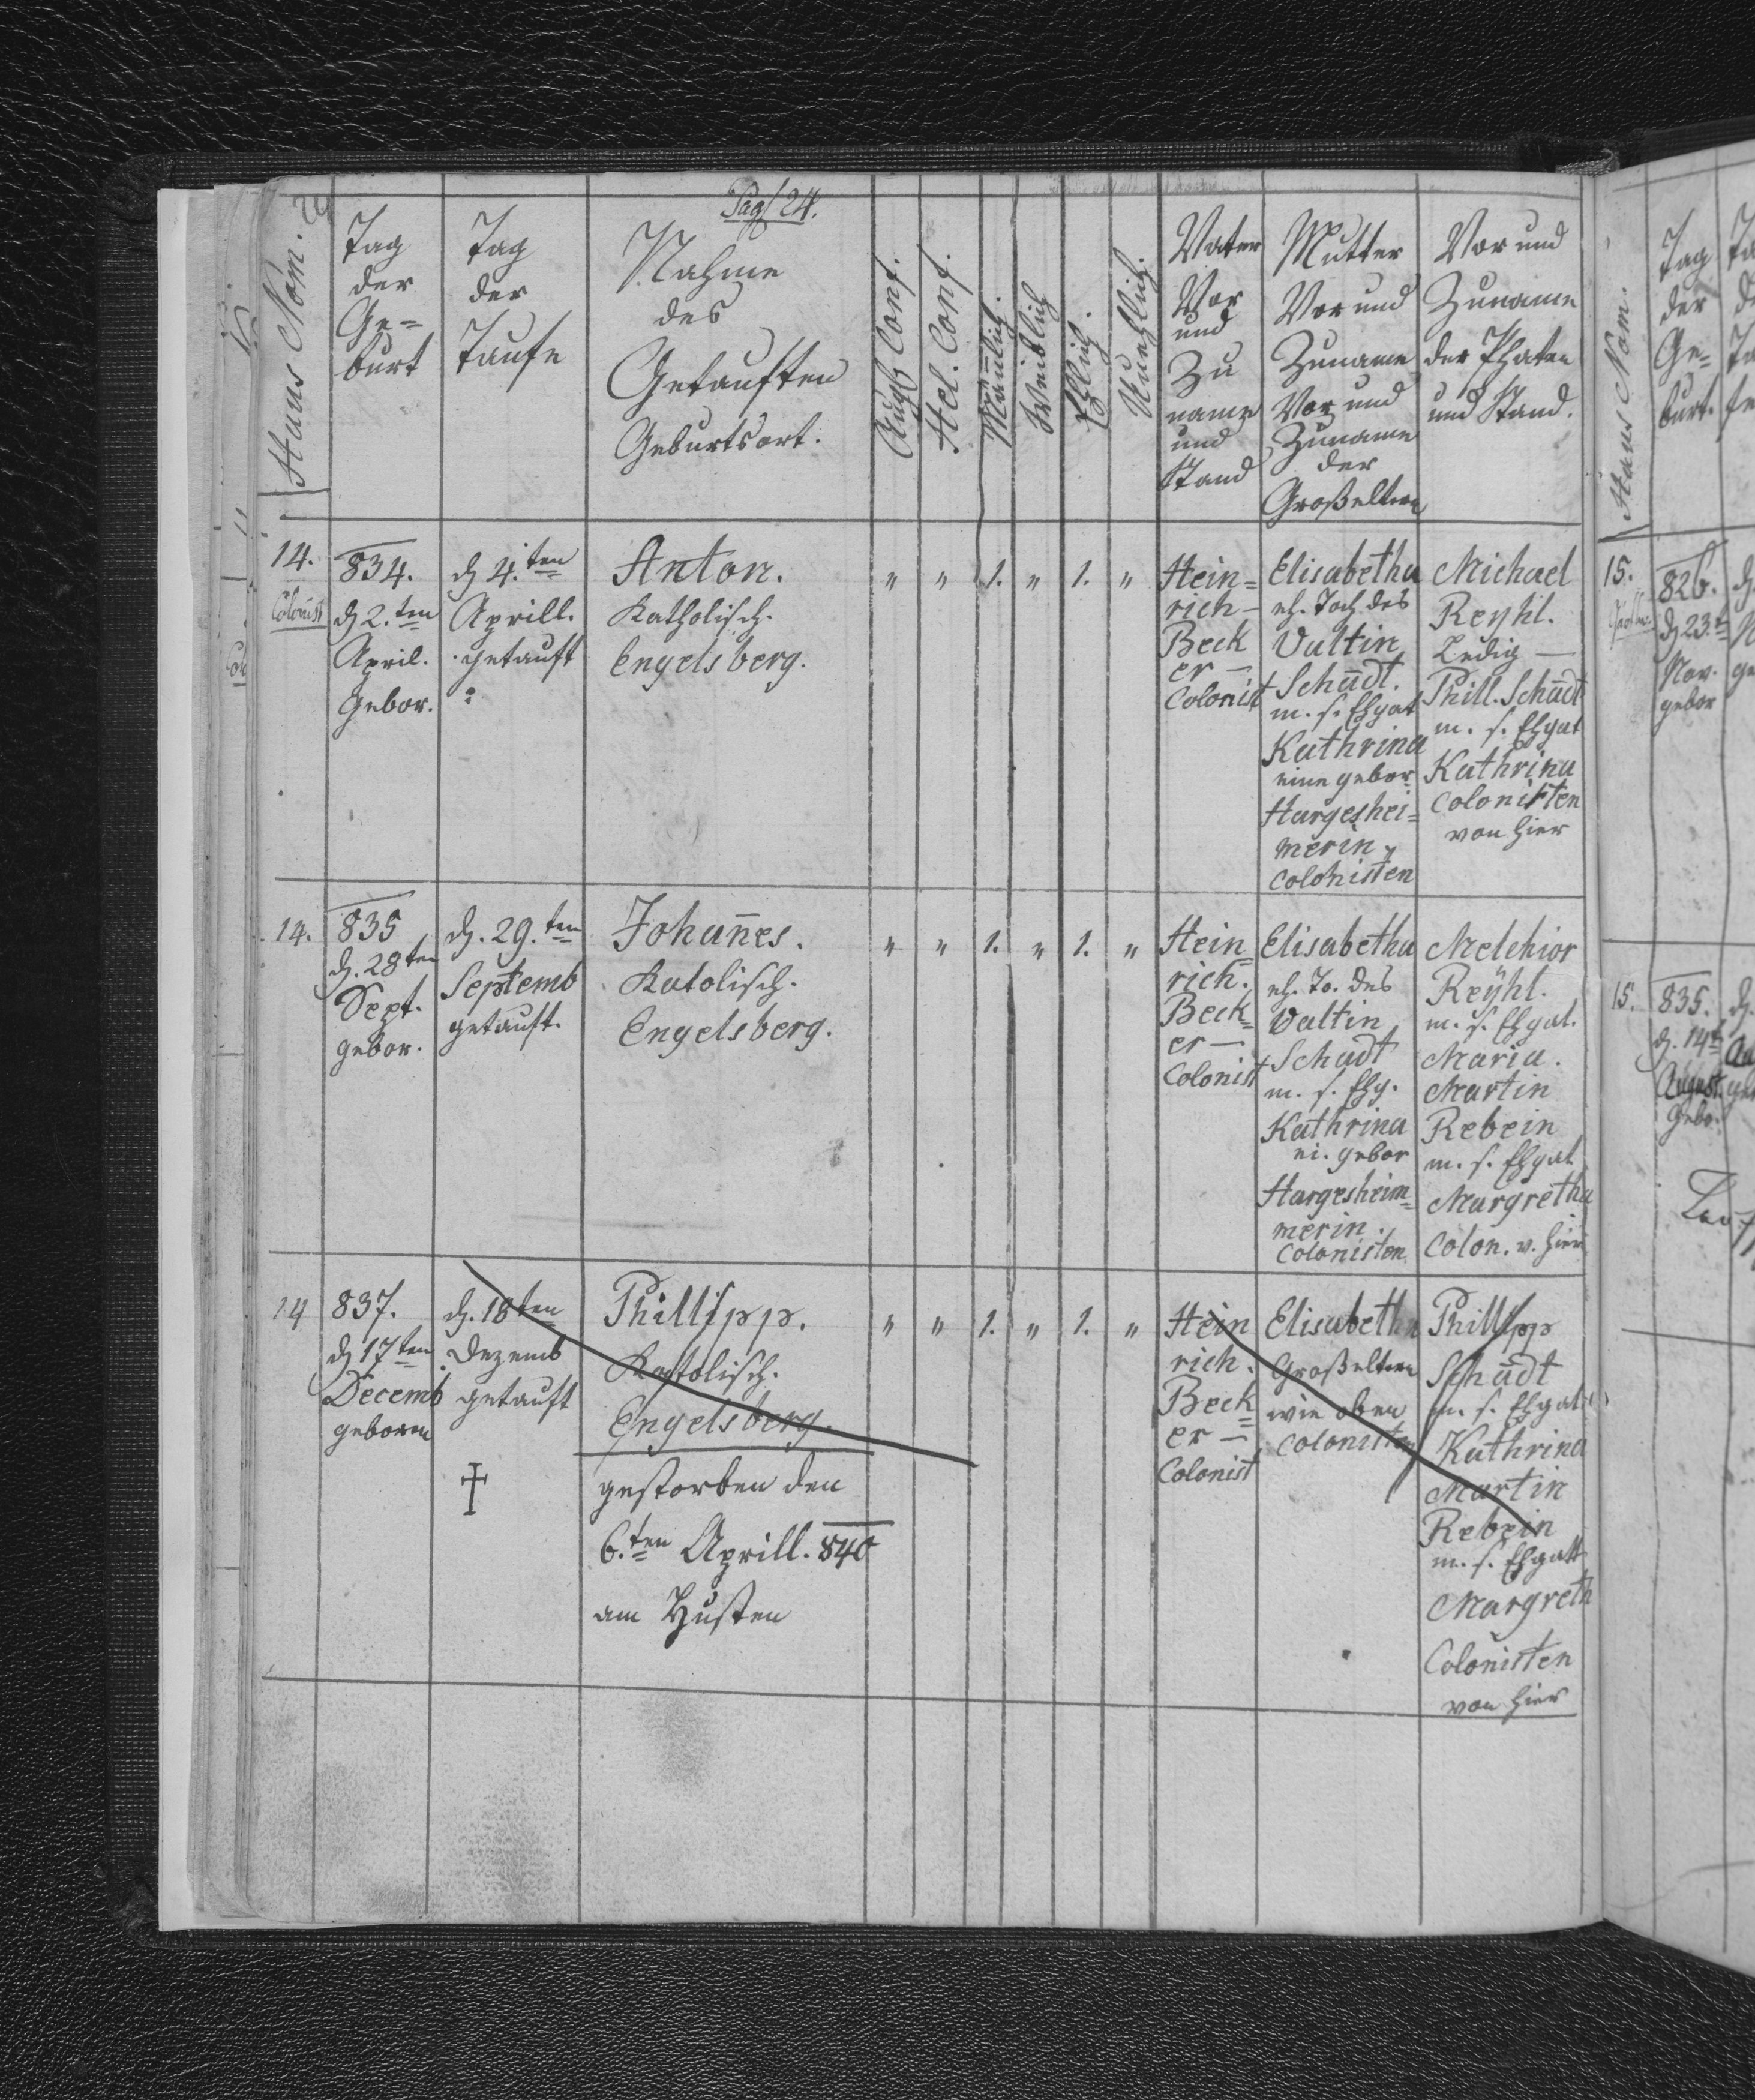 Pag 24.
Haus Nom.
Tag
der
Ge=
burt
Tag
der
Taufe
Nahme
des
Getauften
Geburtsort.
Augb Conf.
Hel. Conf.
Mäñlich.
Weiblich
Ehlich.
Unehlich.
Vater
Vor
und
Zu
name
und
Stand
Mutter
Vor und
Zuname
Vor und
Zuname
der
Großeltern
Vor und
Zuname
der Phaten
und Stand.
14.
Colonist
834.
d 2.ten
April.
Gebor.
d 4.ten
Aprill.
getauft
Anton.
Katholisch.
Engelsberg.
" " 1. " 1. "
Hein=
rich-
Beck
er —
Colonist
Elisabetha
eh. Toch des
Valtin
Schadt.
m. s. Ehgat
Kathrina
eine gebor
Hargeshei=
merin
Colonisten
Michael
Reyhl.
Ledig —
Phill. Schadt
m. s. Ehgat
Kathrina
Colonisten
von hier
14.
835
d. 28ten
Sept.
gebor.
d. 29.ten
Septemb
getauft.
Johañes.
Katolisch.
Engelsberg.
" " 1. " 1. "
Hein=
rich.
Beck=
er —
Colonist
Elisabetha
eh. To. des
Valtin
Schadt
m. s. Ehg.
Kathrina
ei. gebor
Hargesheim=
merin.
Colonisten
Melchior
Reÿhl.
m. s. Ehgat.
Maria.
Martin
Rebein
m. s. Ehgat
Margretha
Colon. v. hier
14
837.
d 17ten
Decemb
geboren
d. 18ten
Dezemb
getauft
Phillipp.
Katolisch.
Engelsberg.
gestorben den
6.ten Aprill. 840
am Husten
" " 1. " 1. "
Hein
rich.
Beck=
er —
Colonist
Elisabetha
Großeltern
wie oben
Colonisten
Phillipp
Schadt
m. s. Ehgat
Kathrina
Martin
Rebein
m. s. Ehgatt
Margreth
Colonisten
von hier
Haus Nom.
Tag
der
Ge=
burt.
15.
826.
d 23.t
Nov.
gebor
15.
835.
d. 14t
August
gebo.